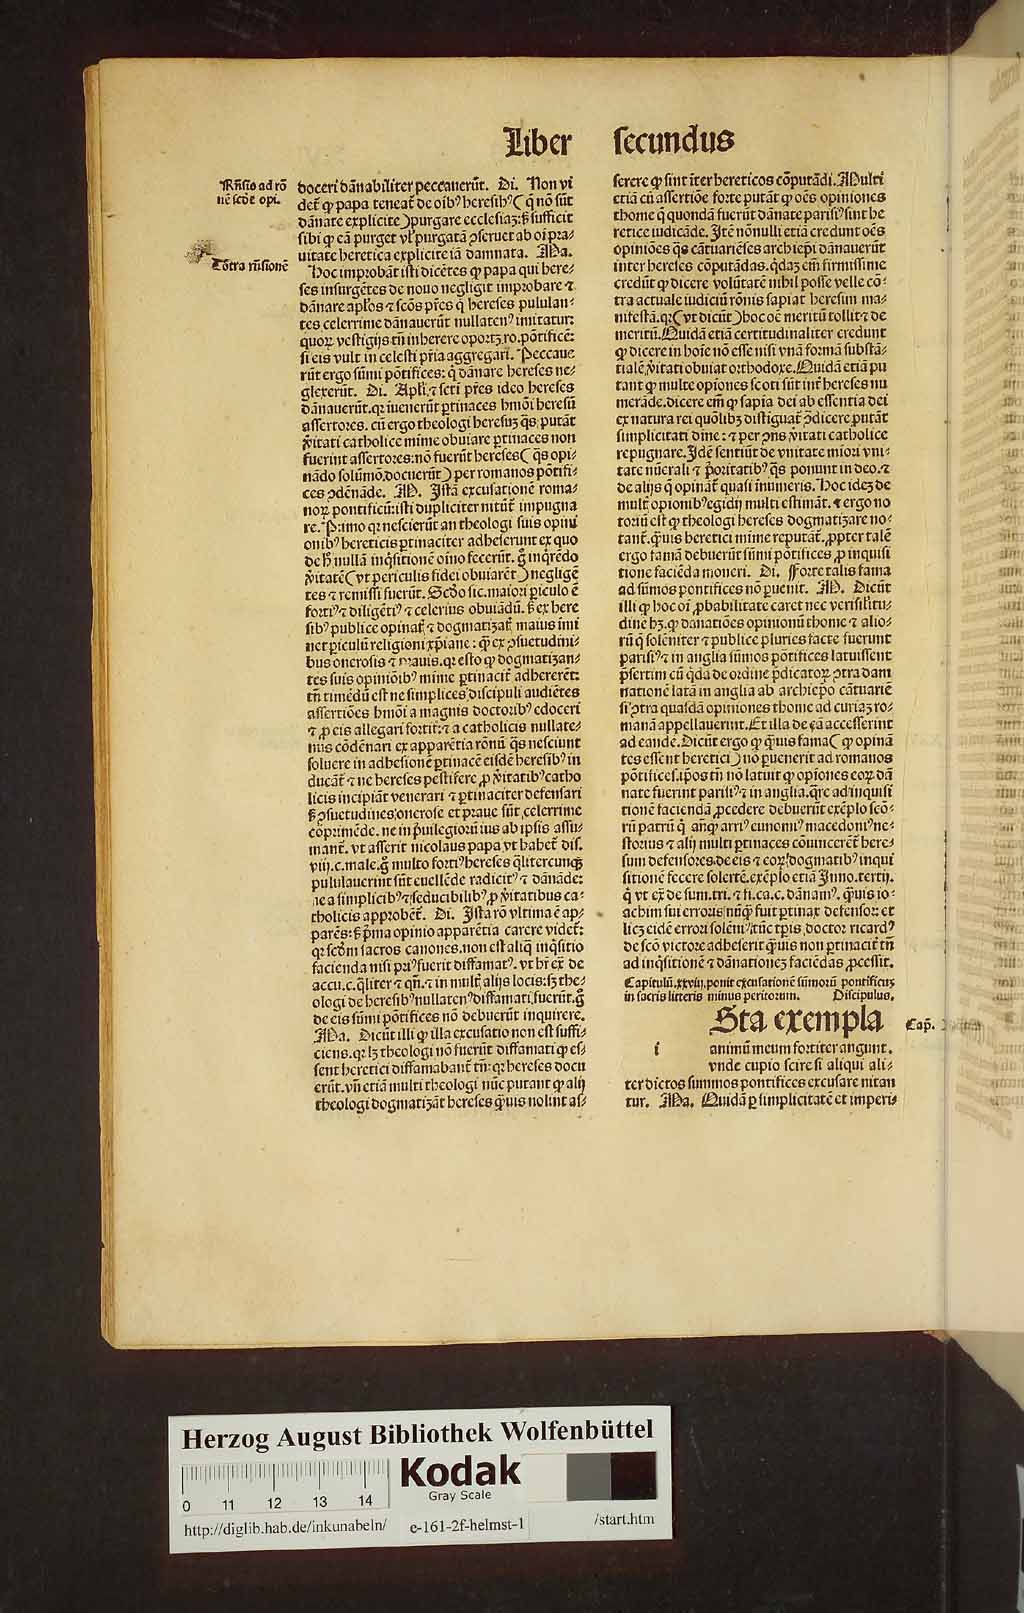 Liber secundus
Rñsio ad rõ
nē scđe opi.
Cõtra rñsionē
doceri dãnabiliter peccauerũt. Di. Non vi
det̃ ꝙ papa teneat̃ de oibꝰ heresibꝰ ( q̃ nõ sũt
dãnate explicite ) purgare ecclesiaꝫ: sꝫ sufficit
sibi ꝙ eã purget vl̓ purgatã ꝯseruet ab oi pra⸗
uitate heretica explicite iã damnata. Ma.
Hoc improbãt isti dicẽtes ꝙ papa qui here⸗
ses insurgẽtes de nouo negligit improbare ⁊
dãnare apl̓os ⁊ scõs pr̃es q̃ hereses pululan⸗
tes celerrime dãnauerũt nullatenꝰ imitatur:
quoꝝ vestigijs tñ inherere oportꝫ ro. põtificẽ:
si eis vult in celesti pr̃ia aggregari. Peccaue
rũt ergo sũmi põtifices: q̃ dãnare hereses ne⸗
glexerũt. Di. Apl̓i ⁊ scti pr̃es ideo hereses
dãnauerũt. qꝛ inuenerũt ꝑtinaces hmõi heresũ
assertores. cũ ergo theologi heresuꝫ q̃s putãt
ṽitati catholice mĩme obuiare ꝑtinaces non
fuerint assertores: nõ fuerũt hereses ( q̃s opi⸗
nãdo solũmõ docuerũt ) per romanos põtifi⸗
ces ꝯdẽnãde. M. Istã excusationẽ roma⸗
noꝝ pontificũ: isti dupliciter nitũt̃ impugna
re. Primo qꝛ nescierũt an theologi suis opini
onibꝰ hereticis ꝑtinaciter adheserunt ex quo
de h̓ nullã inq̃sitionẽ oĩno fecerũt. g̃ inq̃rẽdo
ṽitatẽ ( vt periculis fidei obuiarẽt ) negligẽ
tes ⁊ remissi fuerũt. Scðo sic. maiori ꝑiculo ẽ
fortiꝰ ⁊ diligẽtiꝰ ⁊ celerius obuiãdũ. sꝫ ex here
sibꝰ publice opinat̃ ⁊ dogmatizat̃ maius imi
net ꝑiculũ religioni xp̃iane : q̃ꝫ ex ꝯsuetudini⸗
bus onerosis ⁊ prauis. qꝛ esto ꝙ dogmatizan⸗
tes suis opiniõibꝰ mĩme ꝑtinacit̃ adhererẽt:
tñ timẽdũ est ne simplices discipuli audiẽtes
assertiões hmõi a magnis doctoribꝰ edoceri
⁊ ꝓ eis allegari fortit̃: ⁊ a catholicis nullate⸗
nus cõdẽnari ex apparẽtia rõnũ q̃s nesciunt
soluere in adhesionẽ ꝑtinacẽ eisdẽ heresibꝰ in
ducãt̃ ⁊ ne hereses pestifere ꝓ ṽitatibꝰ catho
licis incipiãt venerari ⁊ ꝑtinaciter defensari
sꝫ ꝯsuetudines onerose et praue sũt celerrime
cõprimẽde. ne in p̃uilegiorũ ius ab ipsis assu⸗
mant̃. vt asserit nicolaus papa vt habet̃ dis.
viij. c. male. g̃ multo fortiꝰ hereses q̃litercunqꝫ
pululauerint sũt euellẽde radicitꝰ ⁊ dãnãde:
ne a simplicibꝰ ⁊ seducibilibꝰ ꝓ ṽitatibus ca⸗
tholicis approbẽt̃. Di. Ista rõ vltima ẽ ap⸗
parẽs: sꝫ p̃ma opinio apparẽtia carere videt̃:
qꝛ scðm sacros canones. non est aliq̃ inq̃sitio
facienda nisi priꝰ fuerit diffamatꝰ. vt hr̃ ex̃ de
accu. c. q̃liter ⁊ qñ. ⁊ in mult̃ alijs locis: sꝫ the⸗
ologi de heresibꝰ nullatenꝰ diffamati fuerũt. g̃
de eis sũmi põtifices nõ debuerũt inquirere.
Ma. Dicũt illi ꝙ illa excusatio non est suffi⸗
ciens. qꝛ lꝫ theologi nõ fuerũt diffamati ꝙ es⸗
sent heretici diffamabant̃ tñ: qꝛ hereses docu
erũt. vñ etiã multi theologi nũc putant ꝙ alij
theologi dogmatizãt hereses q̃uis nolint as⸗
serere ꝙ sint ĩter hereticos cõputãdi. Multi
etiã cũ assertiõe forte putãt ꝙ oẽs opiniones
thome q̃ quondã fuerũt dãnate parisiꝰ sint he
retice iudicãde. Itẽ nõnulli etiã credunt oẽs
opiniões q̃s cãtuariẽses archiep̃i dãnauerũt
inter hereses cõputãdas. q̃daꝫ em̃ firmissime
credũt ꝙ dicere volũtatẽ nihil posse velle cõ⸗
tra actuale iudiciũ rõnis sapiat heresim ma⸗
nifestã. qꝛ ( vt dicũt ) hoc oẽ meritũ tollit ⁊ de
meritũ. Quidã etiã certitudinaliter credunt
ꝙ dicere in hoĩe nõ esse nisi vnã formã substã⸗
tialẽ ṽitati obuiat orthodoxe. Quidã etiã pu
tant ꝙ multe opiones scoti sũt int̃ hereses nu
merãde. dicere em̃ ꝙ sapia dei ab essentia dei
ex natura rei quõlibꝫ distiguat̃ ꝯdicere putãt
simplicitati diñe : ⁊ per ꝯñs ṽitati catholice
repugnare. Idẽ sentiũt de vnitate mĩori vni⸗
tate nũerali ⁊ p̃oritatibꝰ q̃s ponunt in deo. ⁊
de alijs q̃ opinãt̃ quasi ĩnumeris. Hoc ideꝫ de
mult̃ opionibꝰ egidij multi estimãt. ex ergo no
toriũ est ꝙ theologi hereses dogmatizare no⸗
tant̃. q̃uis heretici mĩme reputãt̃. ꝓpter talẽ
ergo famã debuerũt sũmi põtifices ꝓ inquisi
tione faciẽda moneri. Di. Forte talis fama
ad sũmos pontifices nõ ꝑuenit. M. Dicũt
illi ꝙ hoc oĩ ꝓbabilitate caret nec verisil̓itu⸗
dinẽ hꝫ. ꝙ dãnatiões opinionũ thome ⁊ alio⸗
rũ q̃ solẽniter ⁊ publice pluries facte fuerunt
parisiꝰ ⁊ in anglia sũmos põtifices latuissent
p̃sertim cũ q̃da de ordine p̃dicatoꝝ ꝯtra dam
nationẽ latã in anglia ab archiep̃o cãtuariẽ
si ꝯtra quasdã opiniones thome ad curiaꝫ ro⸗
manã appellauerint. Et illa de cã accesserint
ad eande. Dicũt ergo ꝙ q̃uis fama ( ꝙ opinã
tes essent heretici ) nõ ꝑuenerit ad romanos
põtifices. ip̃os tñ nõ latuit ꝙ opĩones eoꝝ dã
nate fuerint parisiꝰ ⁊ in anglia. q̃re ad inquisi
tionẽ faciendã ꝓcedere debuerũt exẽplo scõ⸗
rũ patrũ q̃ añq̃ arriꝰ eunomiꝰ macedoniꝰ ne⸗
storius ⁊ alij multi ꝑtinaces cõuincerẽt̃ here⸗
sum defensores. de eis ⁊ eoꝝ dogmatibꝰ inqui
sitionẽ fecere solertẽ. exẽplo etiã Inno. tertij.
q̃ vt ex̃ de sum. tri. ⁊ fi. ca. c. dãnamꝰ. q̃uis io⸗
achim sui erroris nũq̃ fuit ꝑtinax defensor: et
licꝫ eidẽ errori solẽnꝰ tũc tp̃is doctor ricardꝰ
de scõ victore adheserit q̃uis non ꝑtinacit̃ tñ
ad inq̃sitionẽ ⁊ dãnationeꝫ faciẽdas ꝓcessit.
Capitulũ. xxviij. ponit excusationẽ sũmorũ pontificuꝫ
in sacris litteris minus peritorum. Discipulus.
Sta exempla
Cap̃.
i animũ meum fortiter angunt.
vnde cupio scire si aliqui ali⸗
ter dictos summos pontifices excusare nitan
tur. Ma. Quidã ꝑ simplicitatẽ et imperi⸗
Herzog August Bibliothek Wolfenbüttel
0 11 12 13 14
Kodak
Gray Scale
http://diglib.hab.de/inkunabeln/ e-161-2f-helmst-1 /start.htm